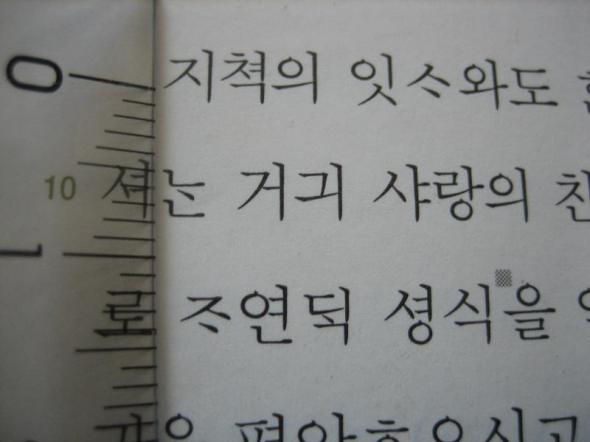 0 지쳑의 잇ᄉᆞ와도
10 셔ᄂᆞᆫ 거긔 샤랑의 친
1
로 ᄌᆞ연 ᄃᆡᆨ 셩식을
편안ᄒᆞ오시고